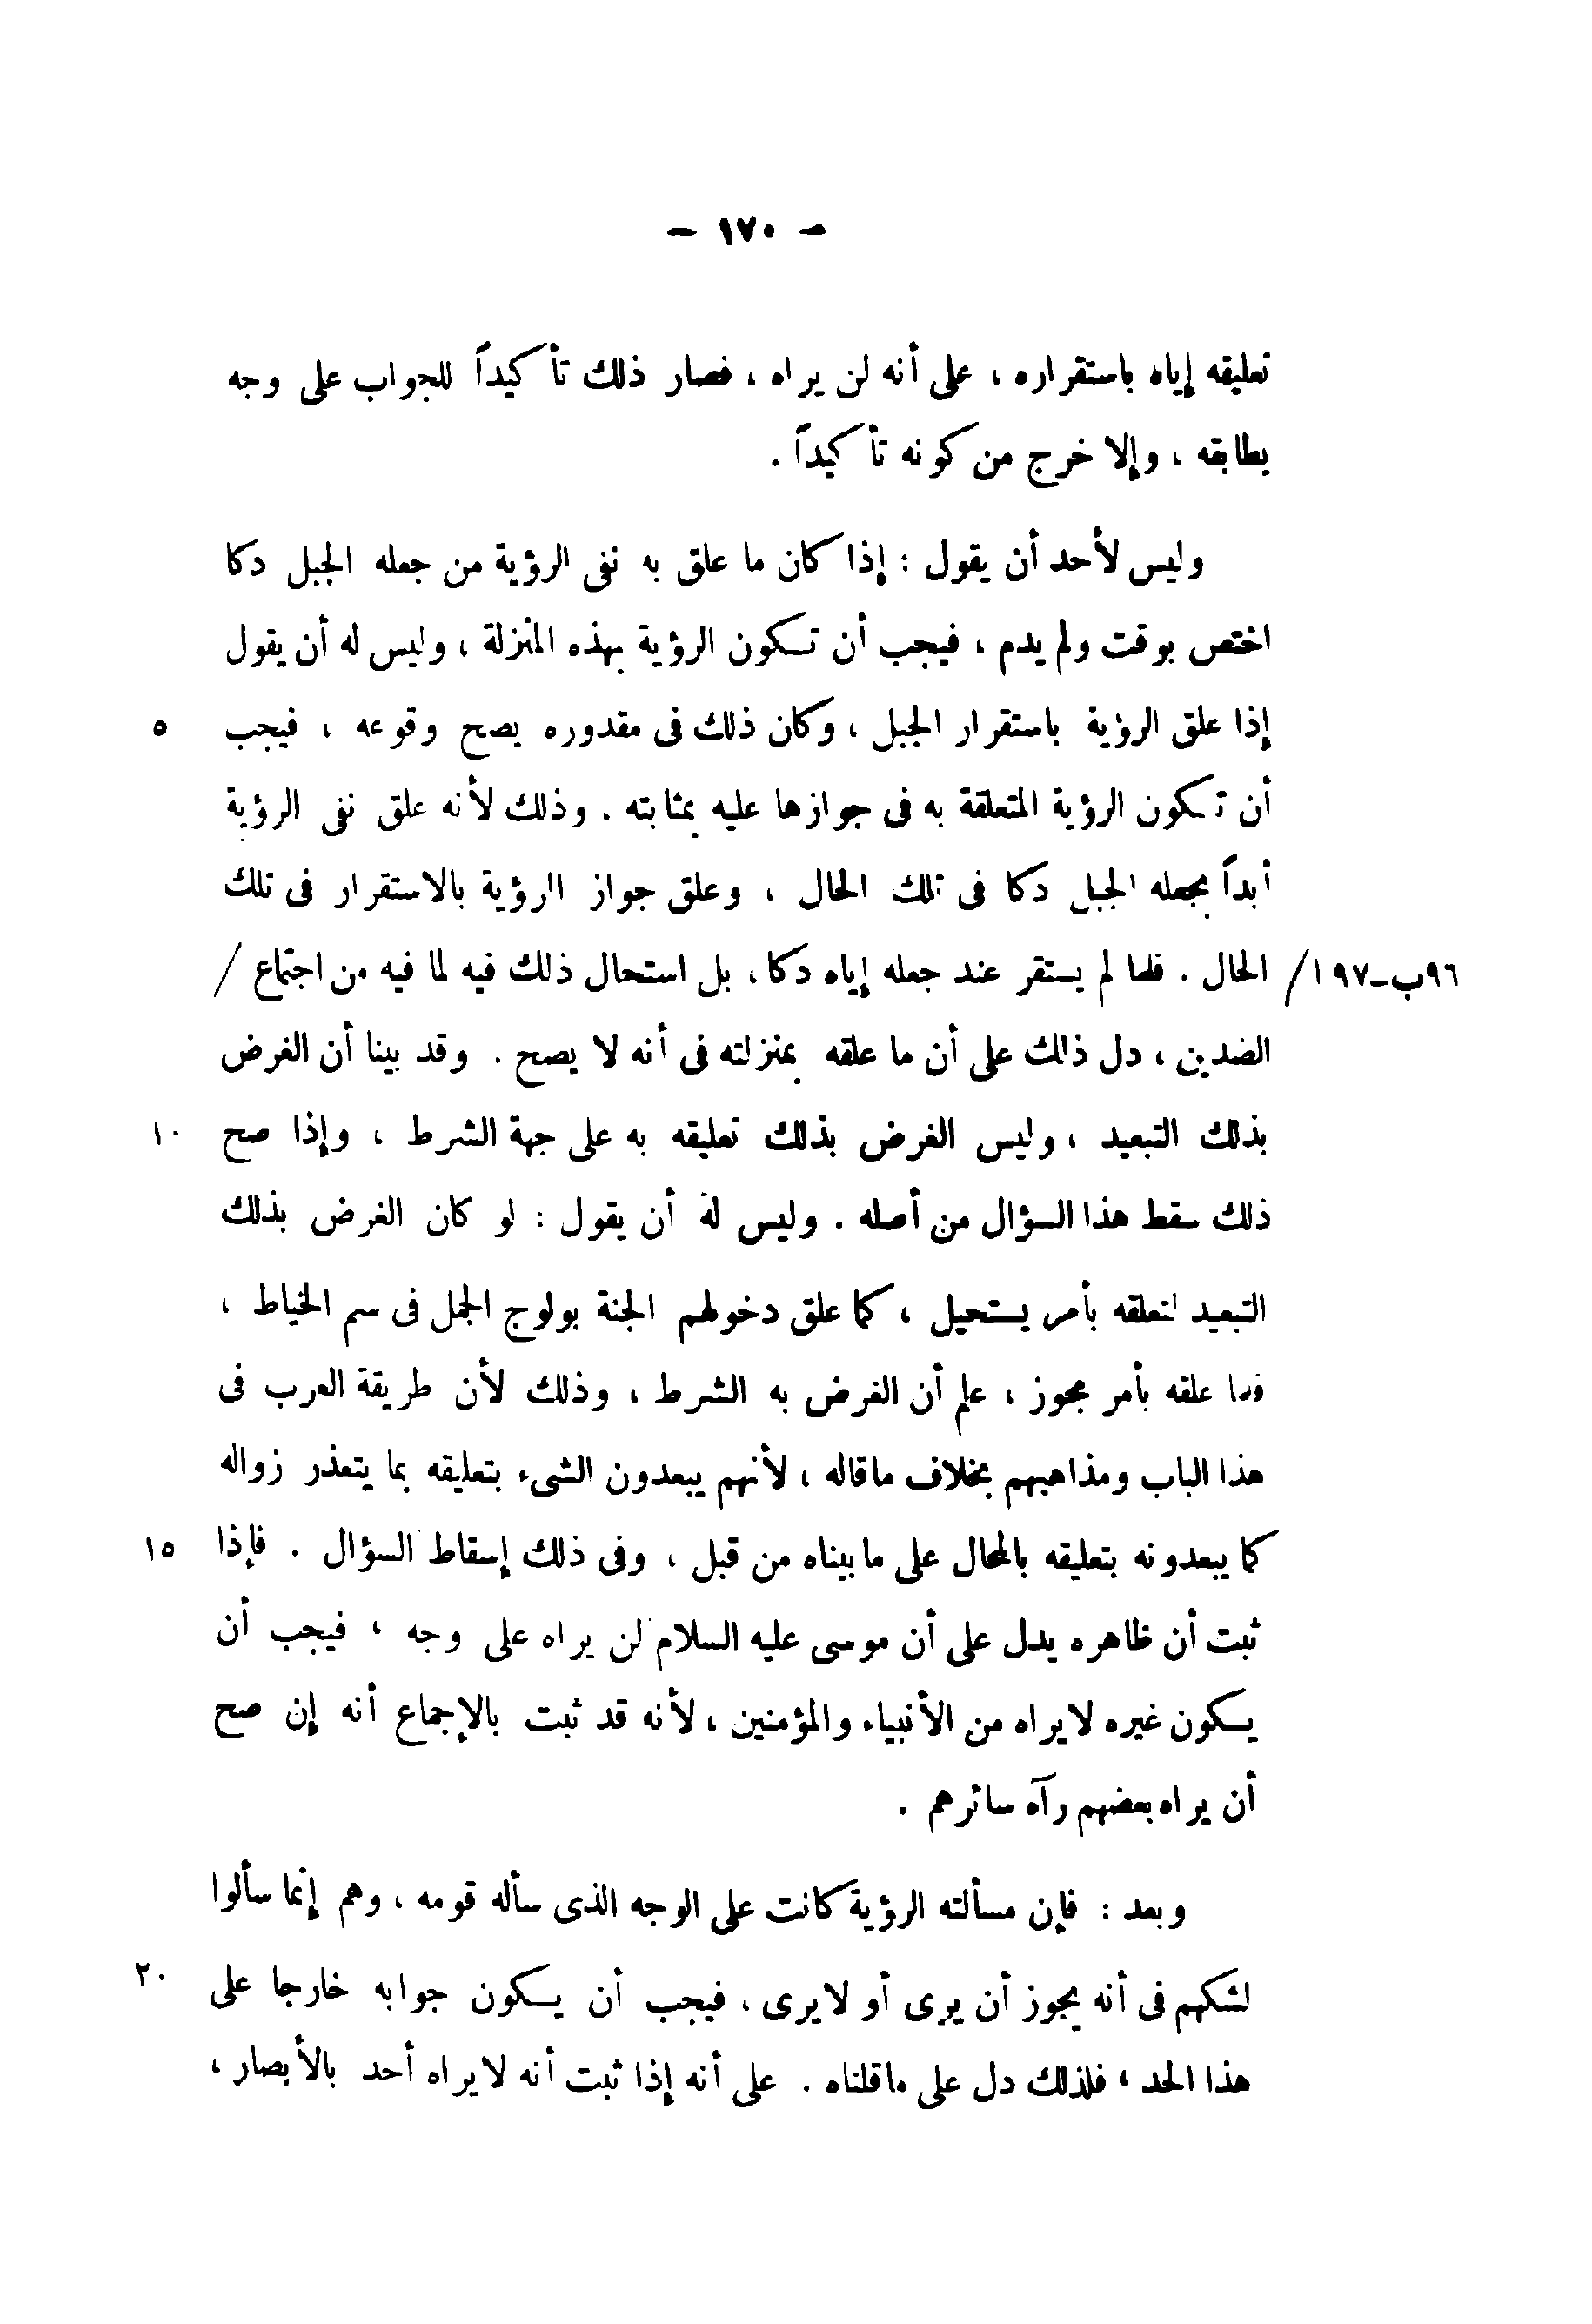 — ١٧٠ —
تعليقه إياه باستقراره ، على أنه لن يراه ، فصار ذلك تأكيداً للجواب على وجه
يطابقه ، وإلا خرج من كونه تأكيداً .
وليس لأحد أن يقول : إذا كان ما علق به نفى الرؤية من جعله الجبل دكا
اختص بوقت ولم يدم ، فيجب أن تكون الرؤية بهذه المنزلة ، وليس له أن يقول
إذا علق الرؤية باستقرار الجبل ، وكان ذلك فى مقدوره يصح وقوعه ، فيجب ٥
أن تكون الرؤية المتعلقة به فى جوازها عليه بمثابته . وذلك لأنه علق نفى الرؤية
أبداً بجعله الجبل دكا فى تلك الحال ، وعلق جواز الرؤية بالاستقرار فى تلك
٩٦ب-١٩٧/ الحال . فلما لم يستقر عند جعله إياه دكا ، بل استحال ذلك فيه لما فيه من اجتماع /
الضدين ، دل ذلك على أن ما علقه بمنزلته فى أنه لا يصح . وقد بينا أن الغرض
بذلك التبعيد ، وليس الغرض بذلك تعليقه به على جهة الشرط ، وإذا صح ١٠
ذلك سقط هذا السؤال من أصله . وليس له أن يقول : لو كان الغرض بذلك
التبعيد لتعلقه بأمر يستحيل ، كما علق دخولهم الجنة بولوج الجمل فى سم الخياط ،
فما علقه بأمر مجوز ، علم أن الغرض به الشرط ، وذلك لأن طريقة العرب فى
هذا الباب ومذاهبهم بخلاف ماقاله ، لأنهم يبعدون الشىء بتعليقه بما يتعذر زواله
كما يبعدونه بتعليقه بالمحال على مابيناه من قبل ، وفى ذلك إسقاط السؤال . فإذا ١٥
ثبت أن ظاهره يدل على أن موسى عليه السلام لن يراه على وجه ، فيجب أن
يكون غيره لايراه من الأنبياء والمؤمنين ، لأنه قد ثبت بالإجماع أنه إن صح
أن يراه بعضهم رآه سائرهم .
وبعد : فإن مسألته الرؤية كانت على الوجه الذى سأله قومه ، وهم إنما سألوا
لشكهم فى أنه يجوز أن يرى أو لايرى ، فيجب أن يكون جوابه خارجا على ٢٠
هذا الحد ، فلذلك دل على ماقلناه . على أنه إذا ثبت أنه لايراه أحد بالأبصار ،